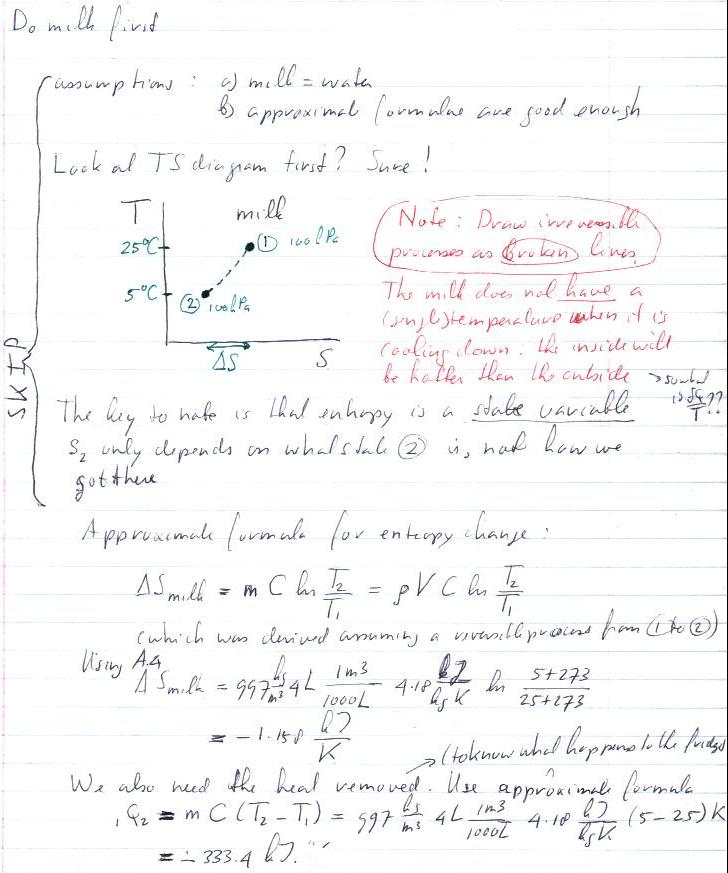 Do milk first
assumptions : a) milk = water
b) approximate formulae are good enough
SKIP
Look at TS diagram first? Sure!
T
milk
25°C
① 100 kPa
5°C
② 100 kPa
ΔS
S
Note: Draw irreversible
processes as broken lines.
The milk does not have a
(single) temperature when it is
cooling down: the inside will
be hotter than the outside
→ so what
is δQ/T ??
The key to note is that entropy is a state variable
S₂ only depends on what state ② is, not how we
got there
Approximate formula for entropy change:
ΔS milk = m C ln T₂/T₁ = ρ V C ln T₂/T₁
(which was derived assuming a reversible process from ① to ②)
Using A.4
ΔS milk = 997 kg/m³ 4L 1m3/1000L 4.18 kJ/kg K ln 5+273/25+273
= -1.158 kJ/K
→ (to know what happens to the fridge)
We also need the heat removed. Use approximate formula
₁Q₂ = m C (T₂ - T₁) = 997 kg/m³ 4L 1m3/1000L 4.18 kJ/kg K (5-25) K
= - 333.4 kJ.